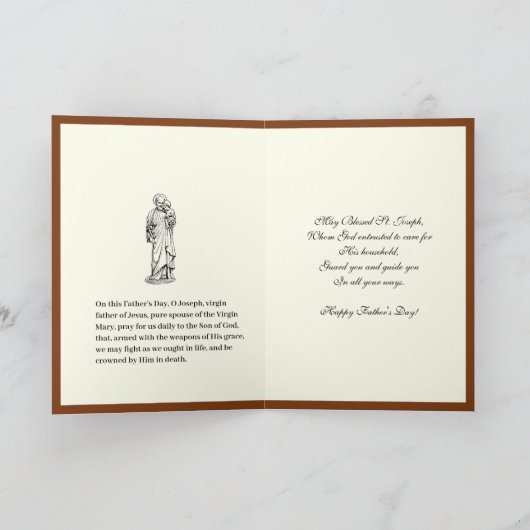 On this Father's Day, O Joseph, virgin
father of Jesus, pure spouse of the Virgin
Mary, pray for us daily to the Son of God,
that, armed with the weapons of His grace,
we may fight as we ought in life, and be
crowned by Him in death.
May Blessed St. Joseph,
Whom God entrusted to care for
His household,
Guard you and guide you
In all your ways.
Happy Father's Day!